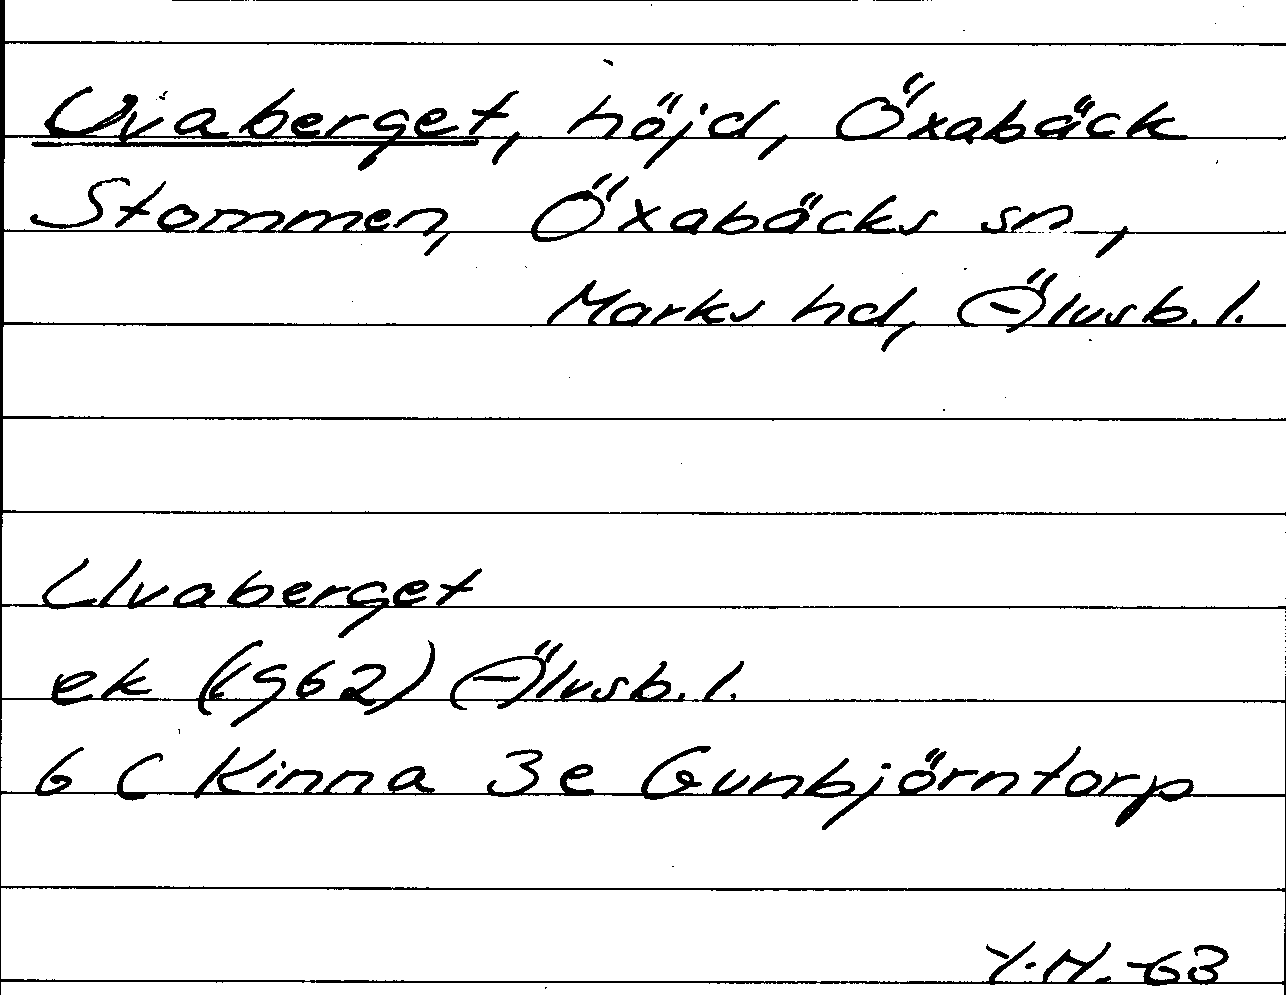 Uvaberget, höjd, Öxabäck
Stommen, Öxabäcks sn,
Marks hd, Älvsb. l.
Uvaberget
ek (1962) Älvsb. l.
6 C Kinna 3e Gunbjörntorp
Y.H. -63